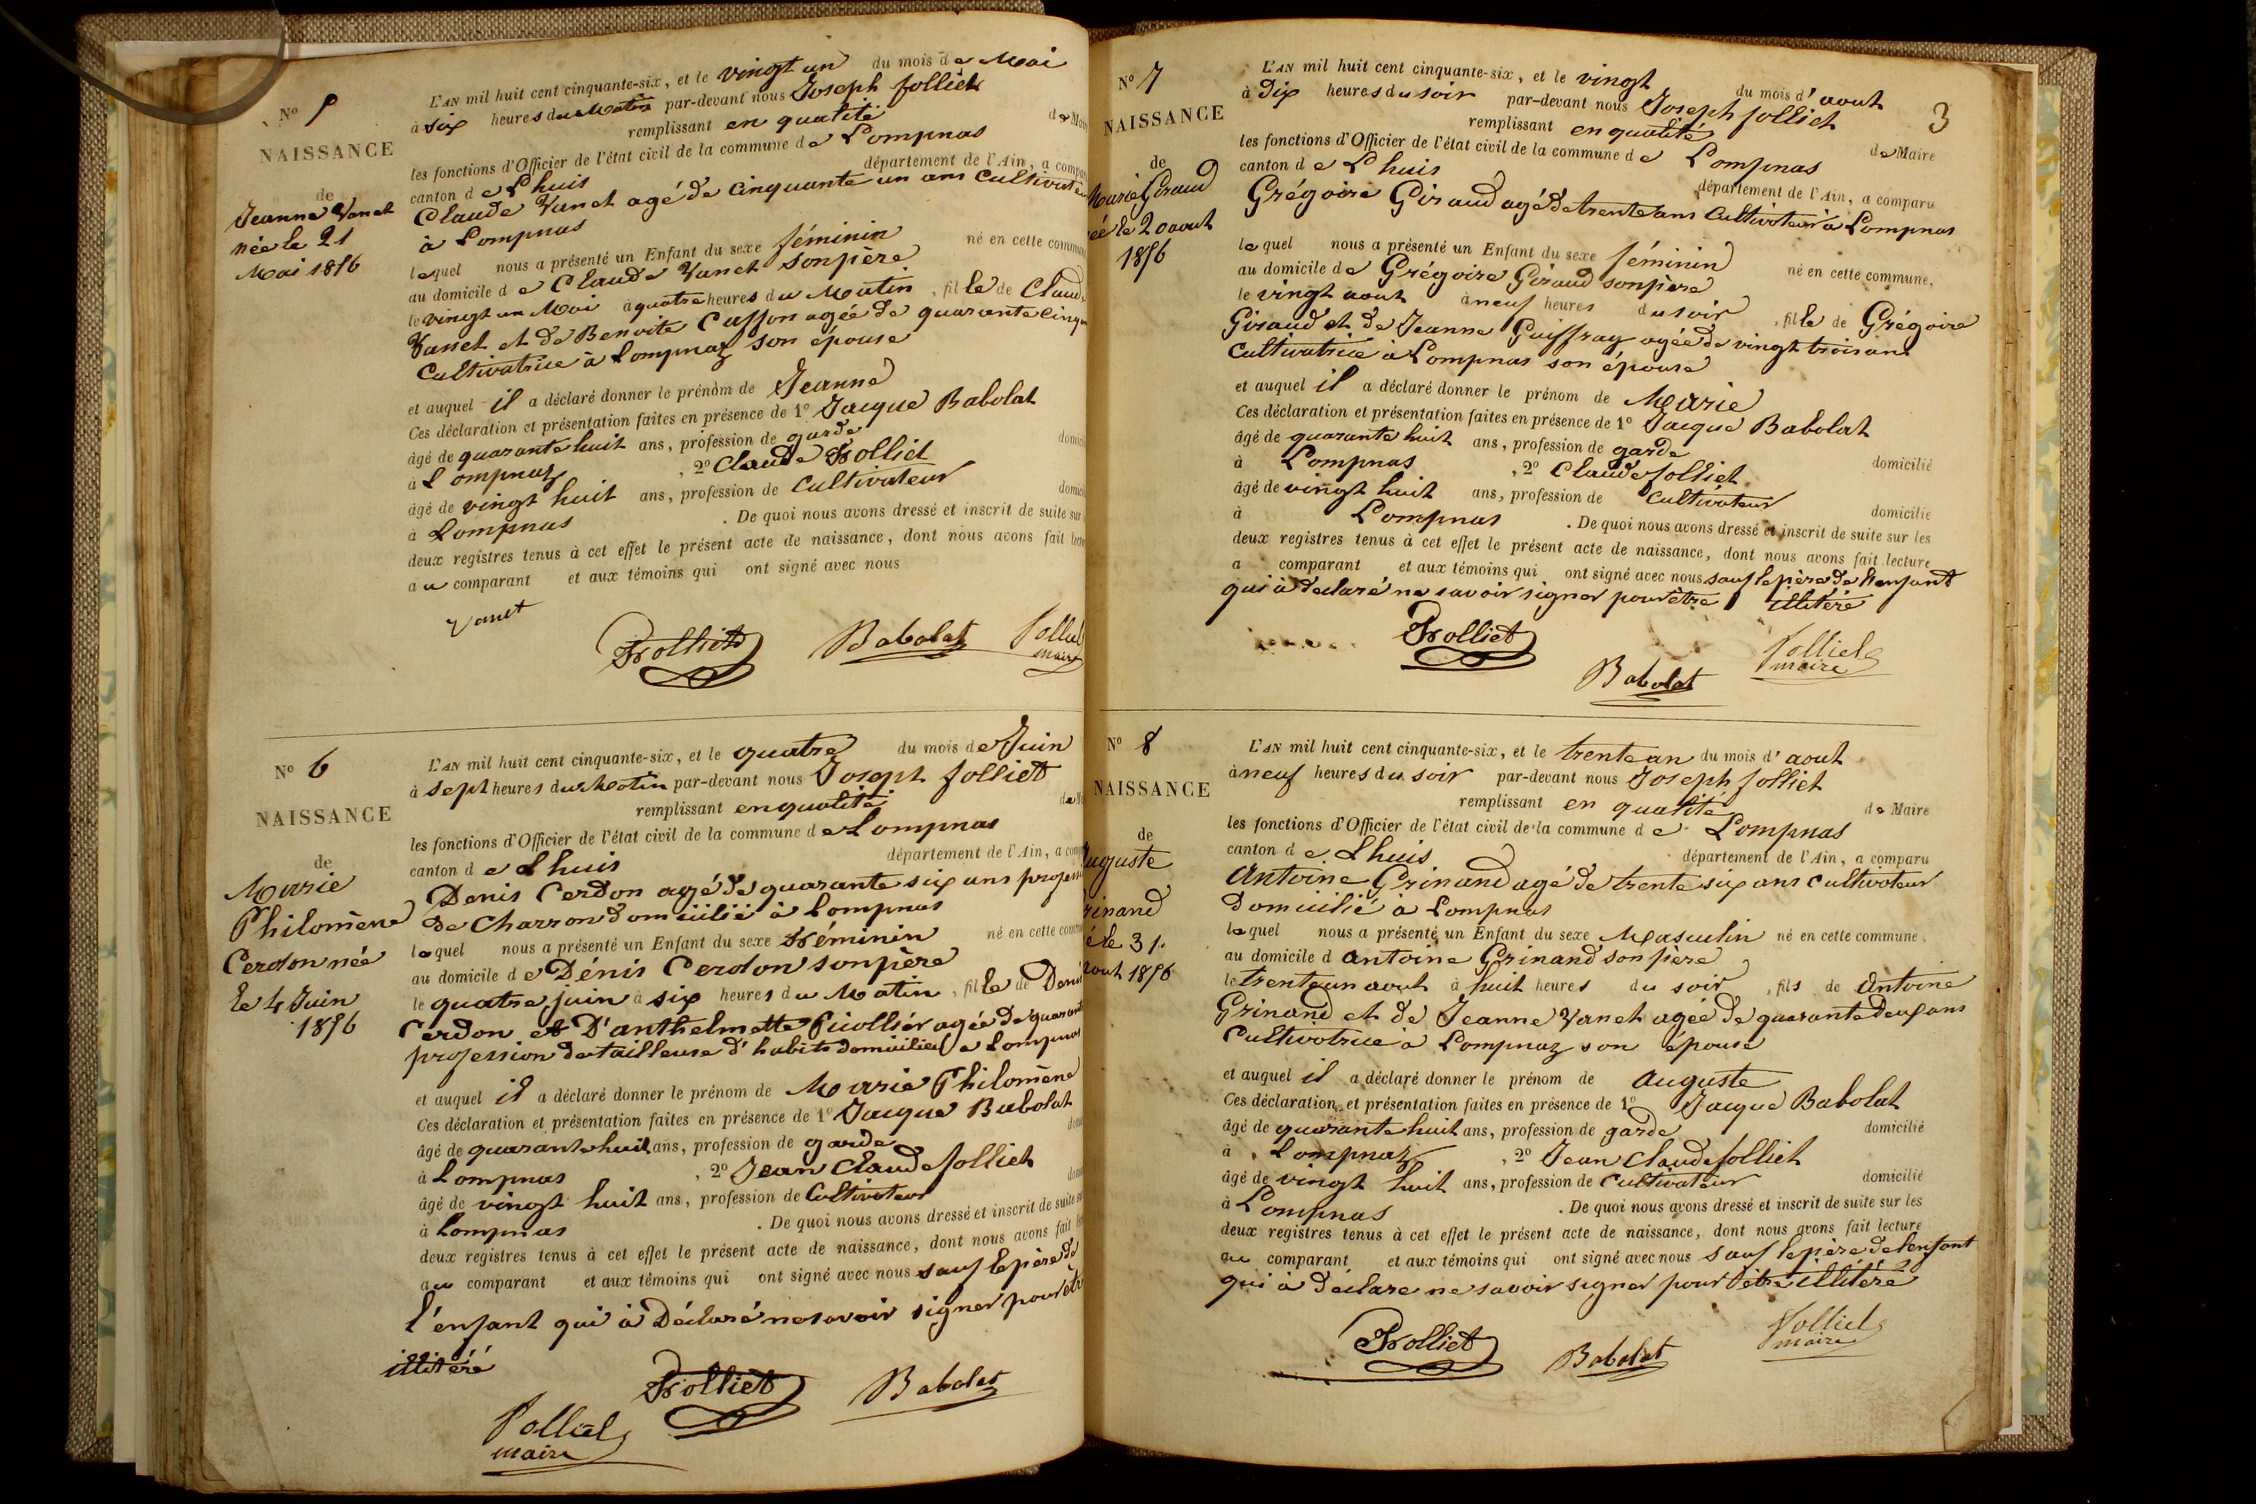 N° 5
NAISSANCE
de
Jeanne Vanet
née le 21
Mai 1856
L'AN mil huit cent cinquante-six, et le vingt un du mois de Mai
à six heures du Matin par-devant nous Joseph folliet
remplissant en qualité de Mai
les fonctions d'Officier de l'état civil de la commune de Lompnas
canton de Lhuis département de l'Ain, a compa
Claude Vanet agé de cinquante un ans Cultivate
à Lompnas
lequel nous a présenté un Enfant du sexe féminin né en cette commu
au domicile de Claude Vanet son père
le vingt un Mai à quatre heures du Matin, fille de Claud
Vanet et de Benoite Casson agée de quarante cinq
Cultivatrice à Lompnaz son épouse
et auquel il a déclaré donner le prénom de Jeanne
Ces déclaration et présentation faites en présence de 1° Jacque Babolat
âgé de quarante huit ans, profession de garde domici
à Lompnaz, 2° Claude folliet
âgé de vingt huit ans, profession de Cultivateur domici
à Lompnas. De quoi nous avons dressé et inscrit de suite sur
deux registres tenus à cet effet le présent acte de naissance, dont nous avons fait lectu
au comparant et aux témoins qui ont signé avec nous
Vanet
folliet Babolat folliet
maire
N° 6
NAISSANCE
de
Marie
Philomène
Cerdon née
le 4 Juin
1856
L'AN mil huit cent cinquante-six, et le quatre du mois de Juin
à sept heures du Matin par-devant nous Joseph folliet
remplissant en qualité de M
les fonctions d'Officier de l'état civil de la commune de Lompnas
canton de Lhuis département de l'Ain, a comp
Denis Cerdon agé de quarante six ans profess
de Charron domicilié à Lompnas
lequel nous a présenté un Enfant du sexe féminin né en cette comm
au domicile de Dénis Cerdon son père
le quatre juin à six heures du Matin, fille de Deni
Cerdon et D'anthelmette Picollier agée de quarant
profession de tailleuse d'habits domiciliée a Lompnas
et auquel il a déclaré donner le prénom de Marie Philomène
Ces déclaration et présentation faites en présence de 1° Jacque Babolat
âgé de quarante huit ans, profession de garde dom
à Lompnas, 2° Jean Claude folliet
âgé de vingt huit ans, profession de Cultivateur dom
à Lompnas. De quoi nous avons dressé et inscrit de suite su
deux registres tenus à cet effet le présent acte de naissance, dont nous avons fait le
au comparant et aux témoins qui ont signé avec nous sauf le père de
l'enfant qui à Déclaré ne savoir signer pour êtr
illitéré
folliet Babolat
folliet
maire
3
N° 7
NAISSANCE
de
Marie Giraud
ée le 20 aout
1856
L'AN mil huit cent cinquante-six, et le vingt du mois d'aout
à dix heures du soir par-devant nous Joseph folliet
remplissant en qualité de Maire
les fonctions d'Officier de l'état civil de la commune de Lompnas
canton de Lhuis département de l'Ain, a comparu
Grégoire Giraud agé de trente ans Cultivateur à Lompnas
lequel nous a présenté un Enfant du sexe féminin né en cette commune,
au domicile de Grégoire Giraud son père
le vingt aout à neuf heures du soir, fille de Grégoire
Giraud et de Jeanne Guiffray agée de vingt trois ans
Cultivatrice à Lompnas son épouse
et auquel il a déclaré donner le prénom de Marie
Ces déclaration et présentation faites en présence de 1° Jacque Babolat
âgé de quarante huit ans, profession de garde domicilié
à Lompnas, 2° Claude folliet
âgé de vingt huit ans, profession de Cultivateur domicilié
à Lompnas. De quoi nous avons dressé et inscrit de suite sur les
deux registres tenus à cet effet le présent acte de naissance, dont nous avons fait lecture
a comparant et aux témoins qui ont signé avec nous sauf le père de l'enfant
qui à declaré ne savoir signer pour être illitéré
folliet
Babolat
folliet
maire
N° 8
NAISSANCE
de
Auguste
rinand
é le 31
aout 1856
L'AN mil huit cent cinquante-six, et le trente un du mois d'aout
à neuf heures du soir par-devant nous Joseph folliet
remplissant en qualité de Maire
les fonctions d'Officier de l'état civil de la commune de Lompnas
canton de Lhuis département de l'Ain, a comparu
Antoine Grinand agé de trente six ans cultivateur
domicilié à Lompnas
lequel nous a présenté un Enfant du sexe Masculin né en cette commune,
au domicile d antoine Grinand son père
le trente un aout à huit heures du soir, fils de Antoine
Grinand et de Jeanne Vanet agée de quarante deux ans
Cultivatrice à Lompnaz son épouse
et auquel il a déclaré donner le prénom de auguste
Ces déclaration et présentation faites en présence de 1° Jacque Babolat
âgé de quarante huit ans, profession de garde domicilié
à Lompnaz, 2° Jean Claude folliet
âgé de vingt huit ans, profession de Cultivateur domicilié
à Lompnas. De quoi nous avons dressé et inscrit de suite sur les
deux registres tenus à cet effet le présent acte de naissance, dont nous avons fait lecture
au comparant et aux témoins qui ont signé avec nous sauf le père de lenfant
qui à déclare ne savoir signer pour être illitéré
folliet Babolat folliet
maire